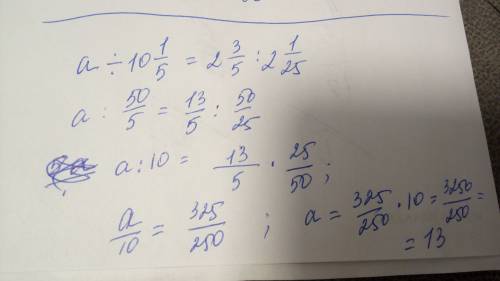 a ÷ 10 1/5 = 2 3/5 : 2 1/25
a : 50/5 = 13/5 : 50/25
a : 10 = 13/5 · 25/50 ;
a/10 = 325/250 ; a = 325/250 · 10 = 3250/250 =
= 13